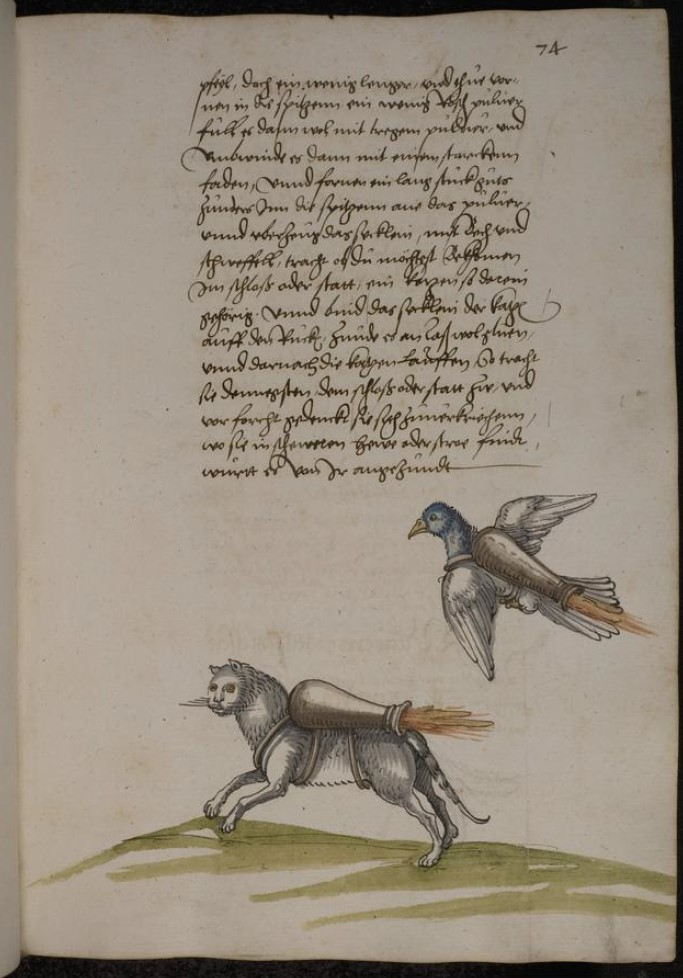 74
pfeyl, doch ein wenig lenger, und thue vor-
nen in die spitzenn ein wenig Rosch puluer
füll es dann wol mit tregem puluer, und
Umbwinde es dann mit einem starckenn
faden, Unnd fornen ein lang stuck guts
zunders Inn die spitzenn ane das puluer,
unnd das secklein, mit Bech und
schweffell, tracht ob du möchtest Bekhomen
Im schloß oder statt, ein katzen so darein
gehörig. Unnd bind das secklein der katz
auff den Ruck, Zunde es an laß wol gluen,
unnd darnach die katzen lauffen, So tracht
sie dem schloß oder statt zue, und
vor forcht gedenckt sie sich zuuerkriechenn,
wo sie in scheweren hewe oder stroe findt,
württ es von Ir angezündt